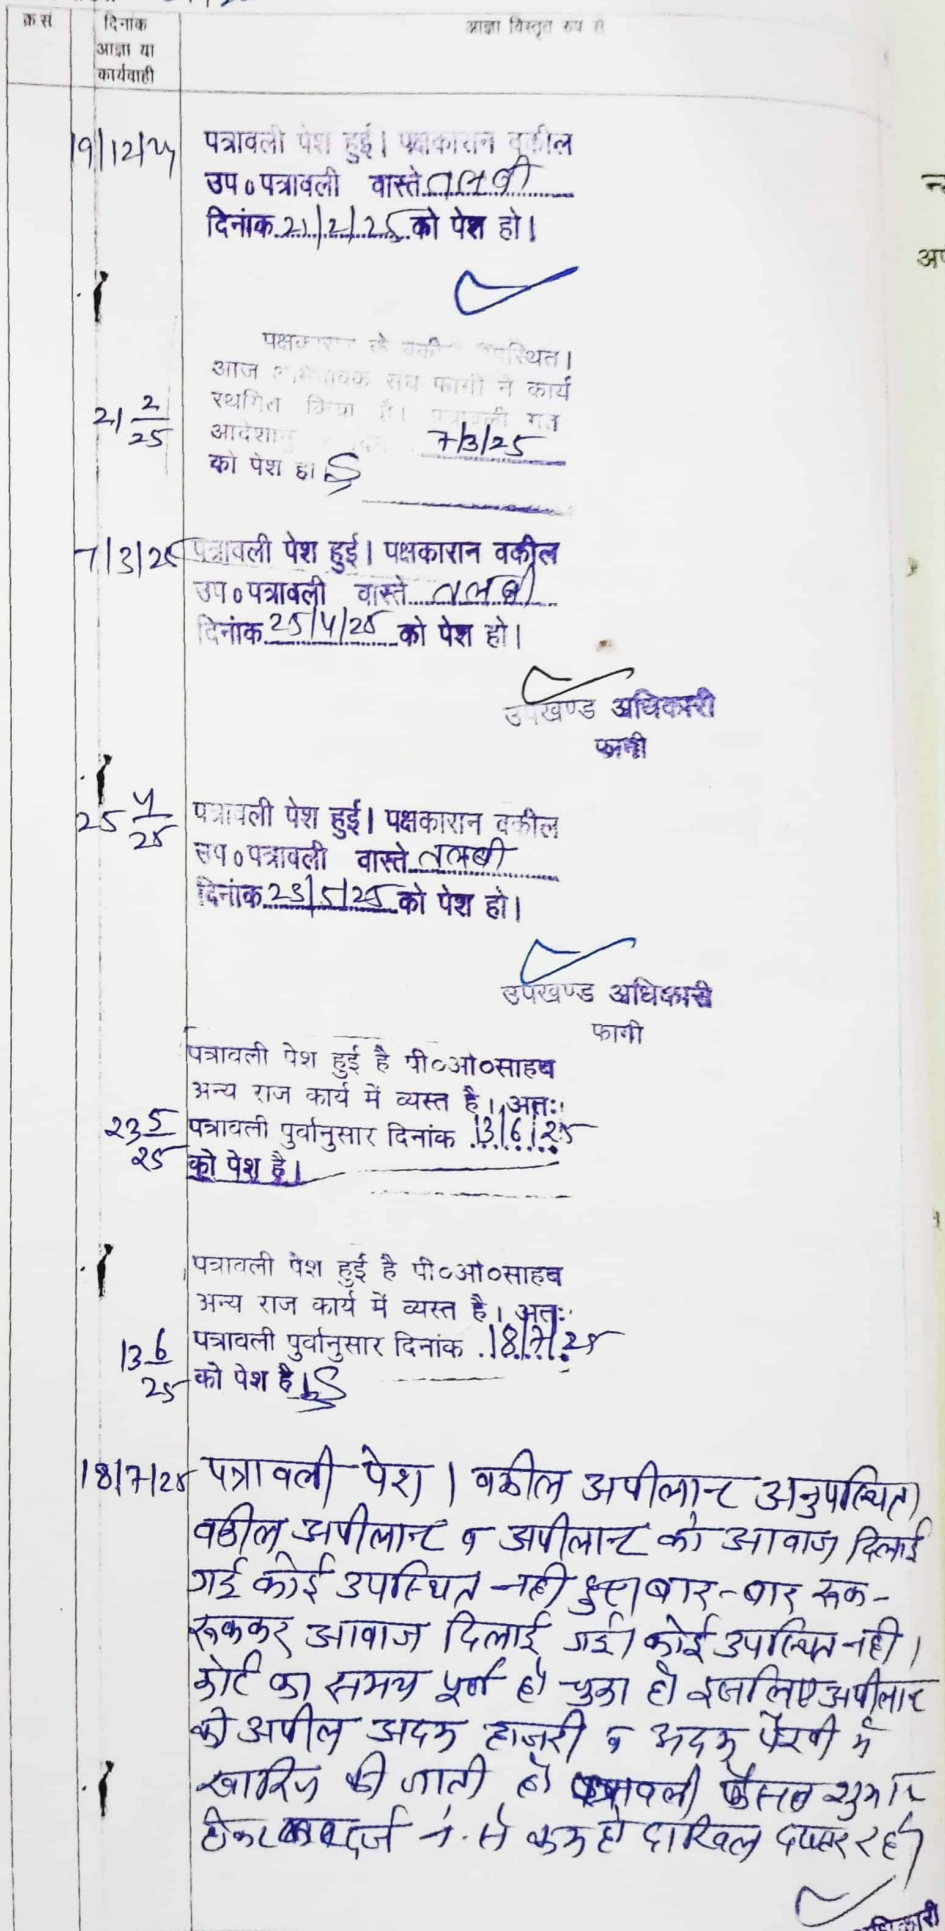 क्र सं
दिनांक
आज्ञा या
कार्यवाही
आज्ञा विस्तृत रुप से
19/12/24
पत्रावली पेश हुई। पक्षकारान वकील
उप० पत्रावली वास्ते तलबी
दिनांक 21/2/25 को पेश हो।
पक्षकारान के वकील उपस्थित।
आज अभिभावक संघ फागी ने कार्य
21 2/25
स्थगित किया है। पत्रावली गत
7/3/25
को पेश हो।
7/3/25
पत्रावली पेश हुई। पक्षकारान वकील
उप० पत्रावली वास्ते तलबी
दिनांक 25/4/25 को पेश हो।
उपखण्ड अधिकारी
फागी
25 4/25
पत्रावली पेश हुई। पक्षकारान वकील
उप० पत्रावली वास्ते तलबी
दिनांक 23/5/25 को पेश हो।
उपखण्ड अधिकारी
फागी
पत्रावली पेश हुई है पी०ओ०साहब
अन्य राज कार्य में व्यस्त है। अतः
23 5/25
पत्रावली पुर्वानुसार दिनांक 13/6/25
को पेश है।
पत्रावली पेश हुई है पी०ओ०साहब
अन्य राज कार्य में व्यस्त है। अतः
13 6/25
पत्रावली पुर्वानुसार दिनांक 18/7/25
को पेश है।
18/7/25
पत्रावली पेश। वकील अपीलान्ट अनुपस्थित।
वकील अपीलान्ट व अपीलान्ट को आवाज दिलाई
गई कोई उपस्थित नही हुए। बार-बार रूक-
रूककर आवाज दिलाई गई। कोई उपस्थित नही।
कोर्ट का समय पूर्ण हो चुका है। इसलिए अपीलान्ट
की अपील अदम हाजरी व अदम पैरवी में
खारिज की जाती है। पत्रावली फैसल शुमार
होकर दर्ज नं. से कम हो दाखिल दफ्तर रहे।